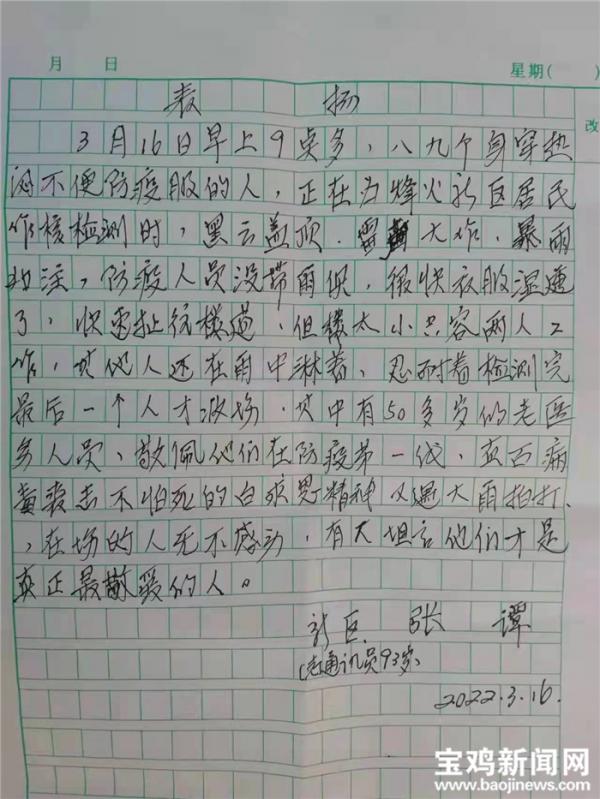 月 日 星期( )
改
表 扬
3月16日早上9点多,八九个身穿热
闷不便防疫服的人,正在为烽火社区居民
作核检测时,黑云盖顶.雷大作,暴雨
如注,防疫人员没带雨俱,很快衣服湿透
了,快速扯往楼道,但楼太小只容两人工
作,其他人还在雨中淋着,忍耐着检测完
最后一个人才收场.其中有50多岁的老医
务人员,敬佩他们在防疫第一线,直面病
毒袭击不怕死的白求恩精神又遇大雨拍打,
,在场的人无不感动,有人坦言他们才是
真正最敬爱的人。
社区 张 谭
(老通讯员93岁)
2022.3.16.
宝鸡新闻网
www.baojinews.com